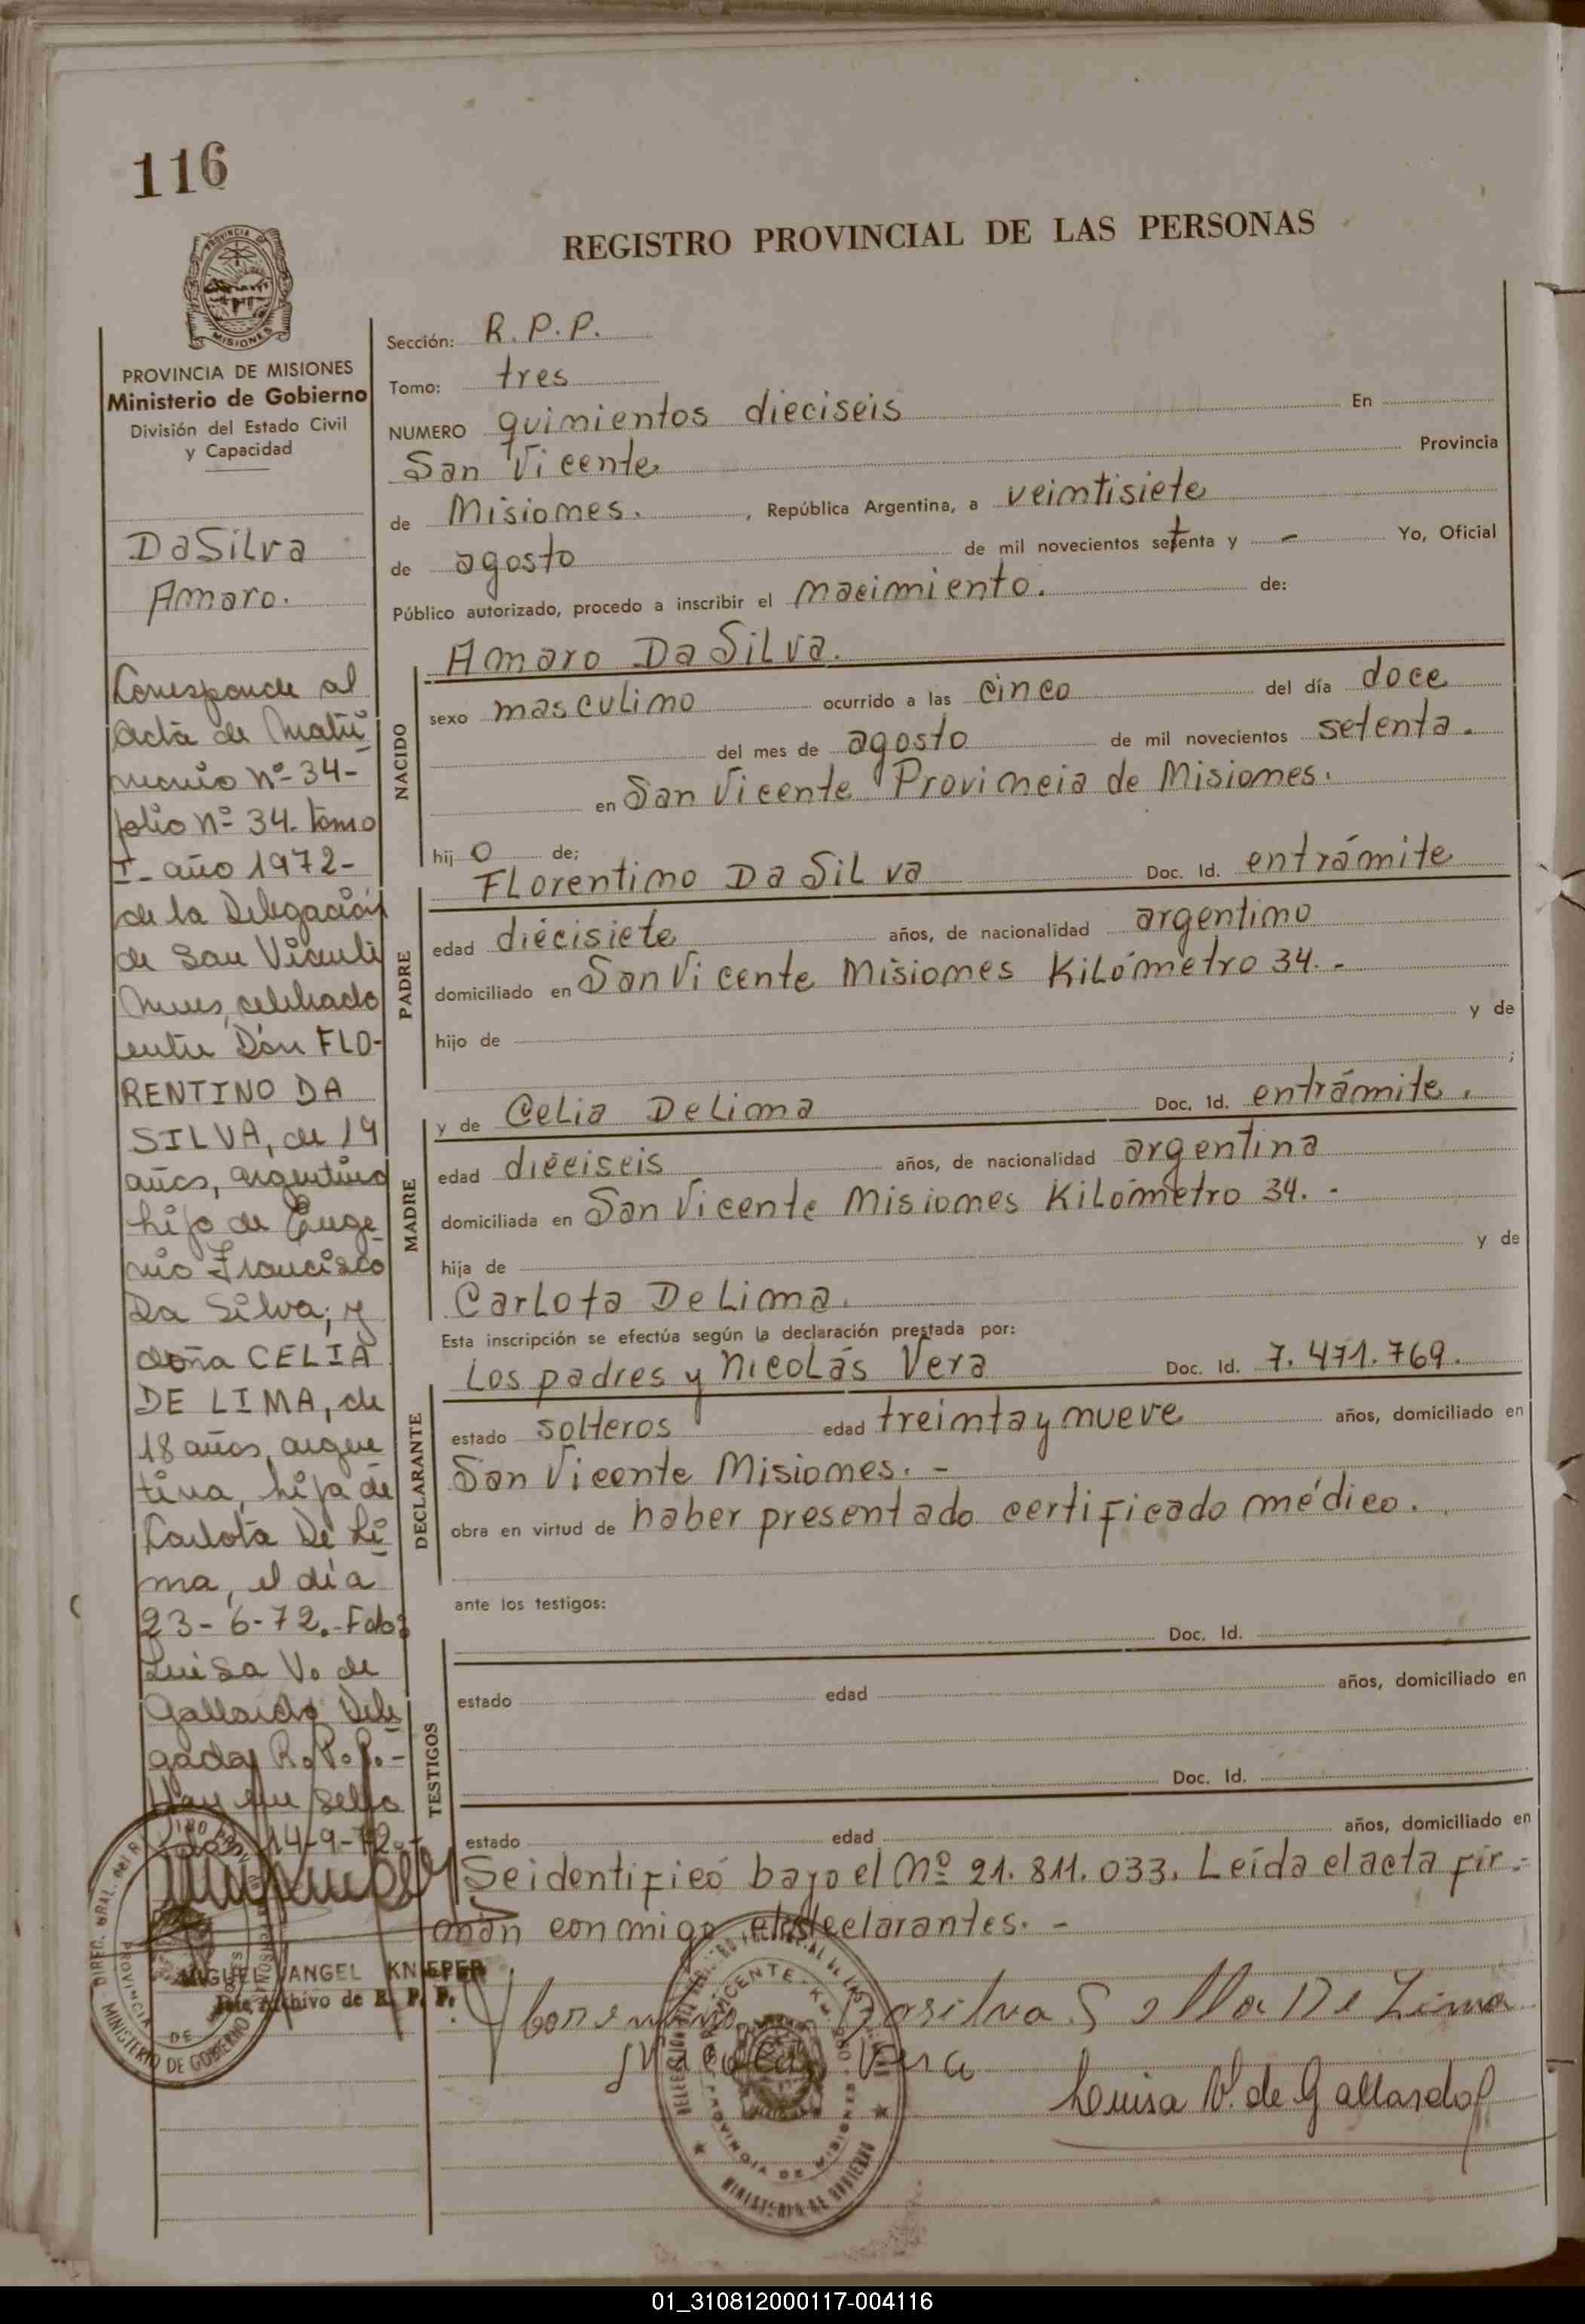 116
REGISTRO PROVINCIAL DE LAS PERSONAS
MISIONES
PROVINCIA DE MISIONES
Ministerio de Gobierno
División del Estado Civil
y Capacidad
DaSilva
Amaro.
Corresponde al
acta de Matri
monio Nº 34-
folio Nº 34. tomo
I- año 1972-
de la Delegación
de San Vicente
Mnes, celebrado
entre Don FLO-
RENTINO DA
SILVA, de 19
años, argentino
hijo de Euge
nio Francisco
Da Silva; y
doña CELIA
DE LIMA, de
18 años, argen
tina, hija de
Carlota De Li
ma, el día
23-6-72.-Fdo:
Luisa V. de
Gallardo Dele
gada R.P.P.-
Hay un sello
14-9-72.-
MIGUEL ANGEL KNIEPER
Jefe Archivo de R. P. P.
Sección: R.P.P.
Tomo: tres
NUMERO quimientos dieciseis En
San Vicente Provincia
de Misiones. , República Argentina, a veintisiete
de agosto de mil novecientos setenta y - Yo, Oficial
Público autorizado, procedo a inscribir el nacimiento. de:
Amaro DaSilva.
NACIDO
sexo masculino ocurrido a las cinco del día doce
del mes de agosto de mil novecientos setenta.
en San Vicente Provincia de Misiones.
hij o de;
Florentino DaSilva Doc. Id. entrámite
PADRE
edad diécisiete años, de nacionalidad argentino
domiciliado en San Vicente Misiones Kilómetro 34.-
hijo de y de
;
y de Celia DeLima Doc. Id. entrámite.
MADRE
edad diéciseis años, de nacionalidad argentina
domiciliada en San Vicente Misiones Kilómetro 34.-
hija de y de
Carlota DeLima.
Esta inscripción se efectúa según la declaración prestada por:
Los padres y Nicolás Vera Doc. Id. 7.471.769.
DECLARANTE
estado solteros edad treinta y nueve años, domiciliado en
San Vicente Misiones.-
obra en virtud de haber presentado certificado médico.
ante los testigos:
Doc. Id.
TESTIGOS
estado edad años, domiciliado en
Doc. Id.
estado edad años, domiciliado en
Se identificó bajo el Nº 21.811.033. Leída el acta fir-
man conmigo declarantes.-
Dasilva De Lima
Vera
Luisa V. de Gallardo
01_310812000117-004116